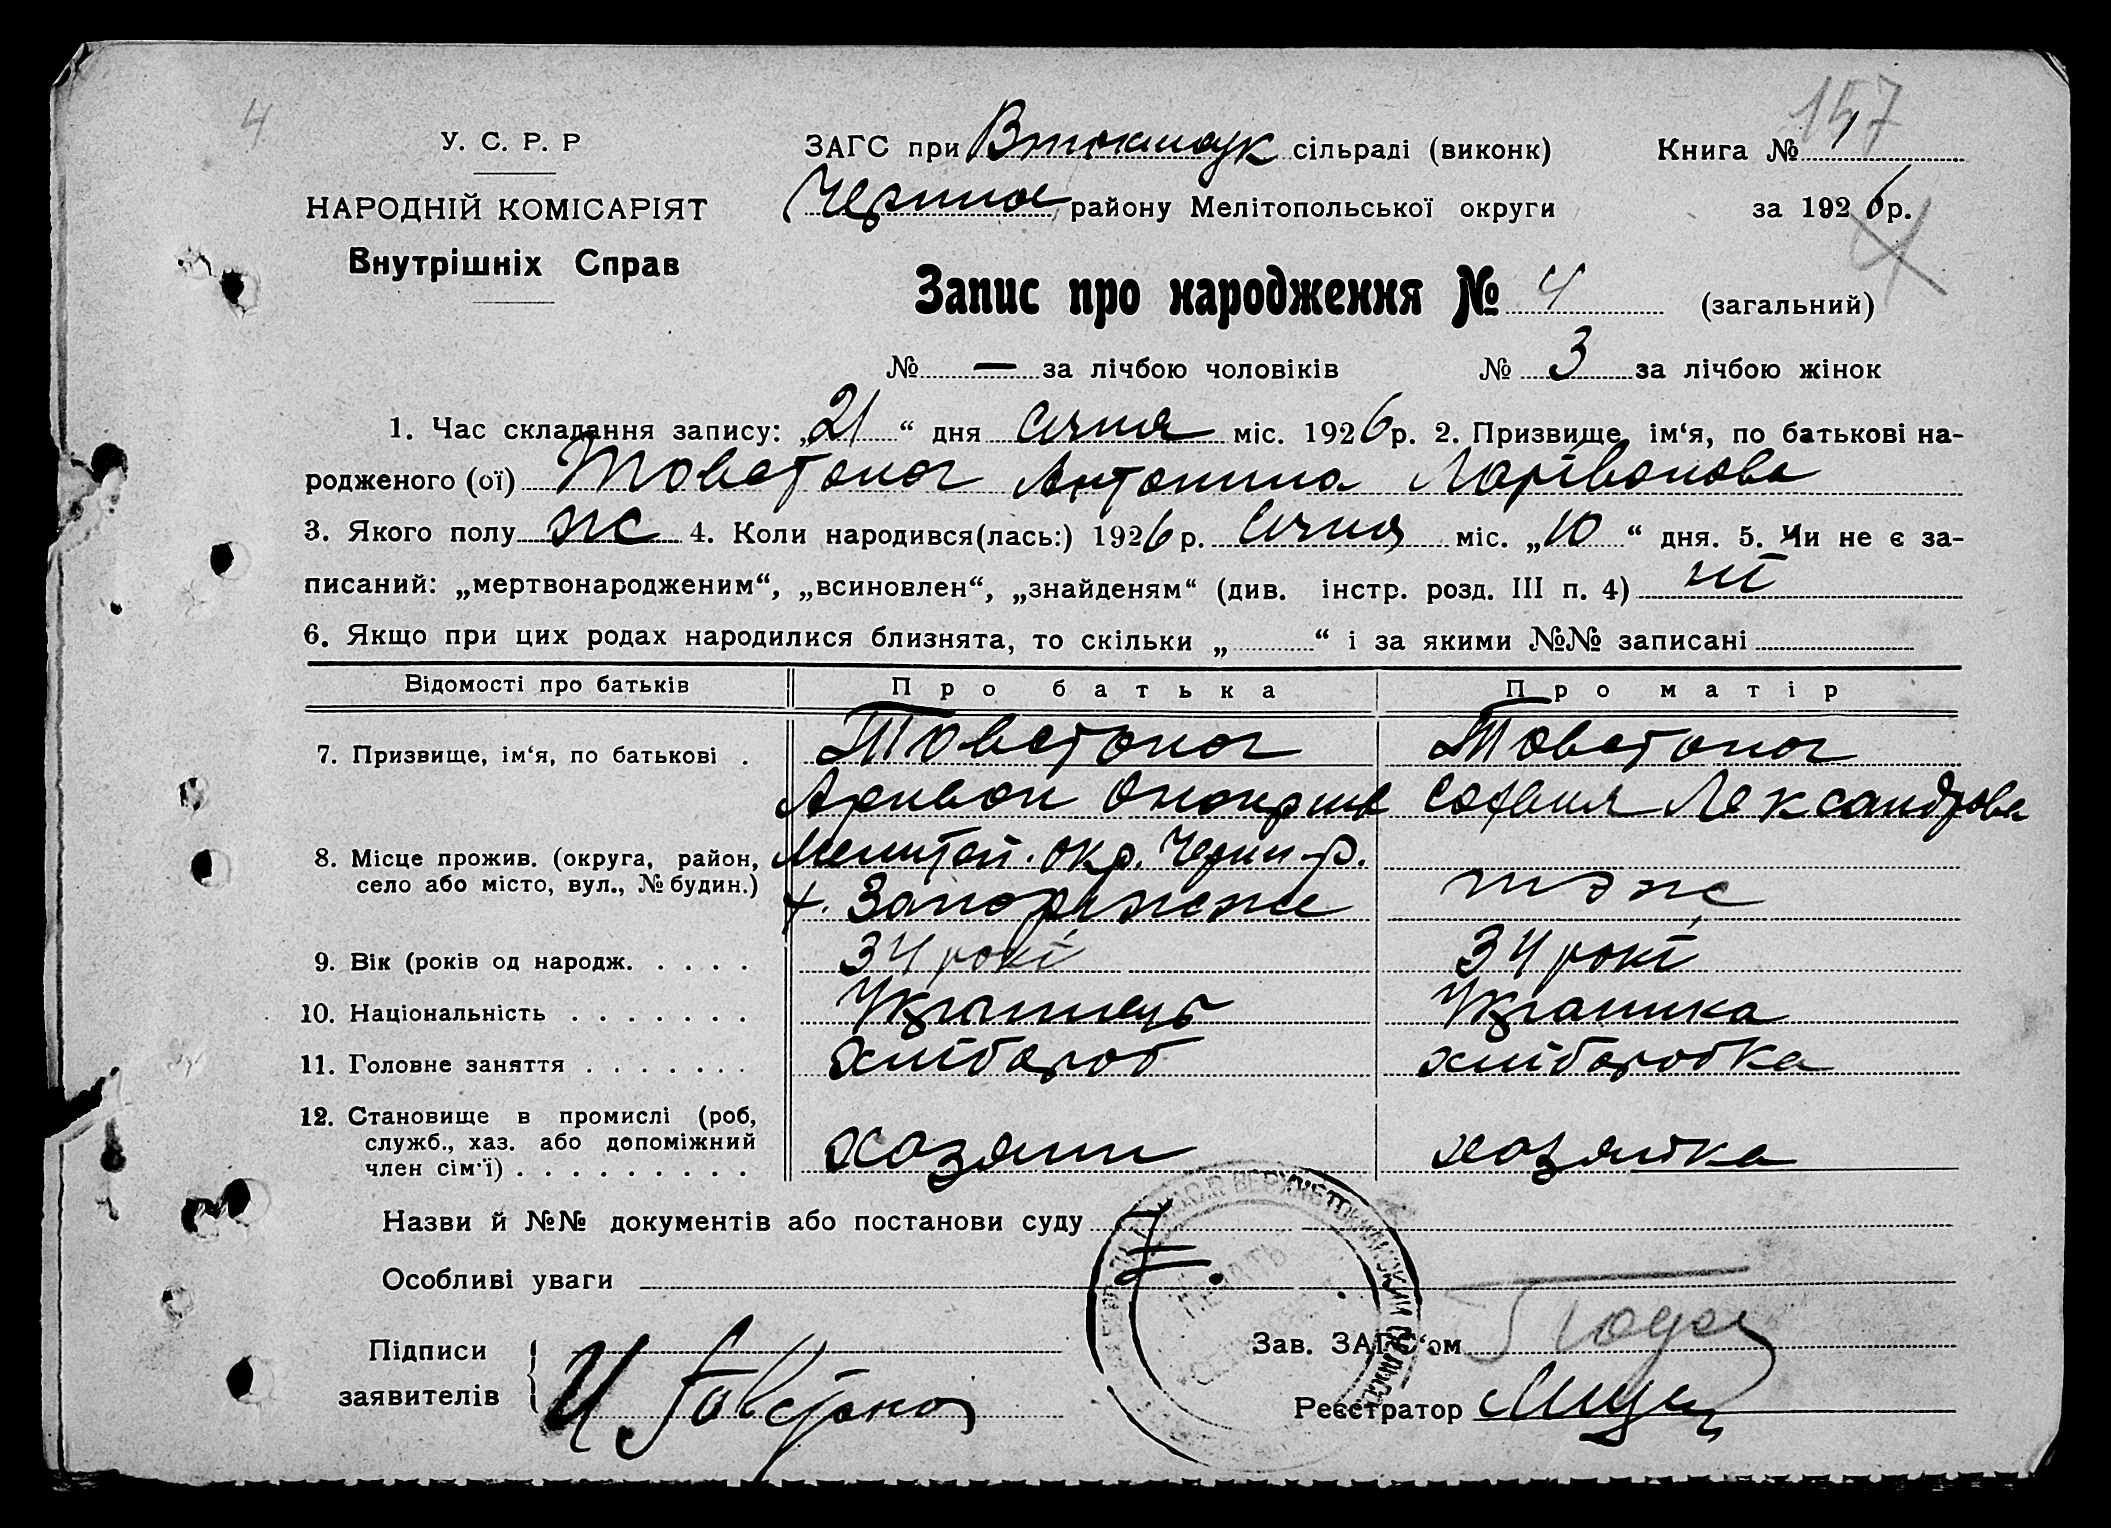 4
157
У. С. Р. Р
НАРОДНІЙ КОМІСАРІЯТ
Внутрішніх Справ
ЗАГС при Втокмаук сільраді (виконк)
Книга № 1
району Мелітопольської округи
за 1926 р.
4
Запис про народження № 4 (загальний)
№ — за лічбою чоловіків № 3 за лічбою жінок
1. Час складання запису: „21“ дня січня міс. 1926 р. 2. Призвище, ім‘я, по батькові на-
родженого (ої) Товстоног Антонина Ларівонова
3. Якого полу ж 4. Коли народився(лась:) 1926 р. січня міс. „10“ дня. 5. Чи не є за-
писаний: „мертвонародженим“, „всиновлен“, „знайденям“ (див. інстр. розд. III п. 4) ні
6. Якщо при цих родах народилися близнята, то скільки „ “ і за якими №№ записані
Відомості про батьків Про батька Про матір
7. Призвище, ім‘я, по батькові . Товстоног Товстоног
Ларивон Лександрова
8. Місце прожив. (округа, район, окр. р.
село або місто, вул., № будин.) х. тож
9. Вік (років од народж. . . . . 34 рокі 34 рокі
10. Національність . . . . . . . Украинець Украинка
11. Головне заняття . . . . . . . хлібороб хліборобка
12. Становище в промислі (роб,
служб., хаз. або допоміжний хозяин хозяйка
член сім‘ї) . . . . . . . . .
Назви й №№ документів або постанови суду
Особливі уваги
ПЕЧАТЬ
Підписи
заявителів
Зав. ЗАГС‘ом
И Товстоног
Реєстратор